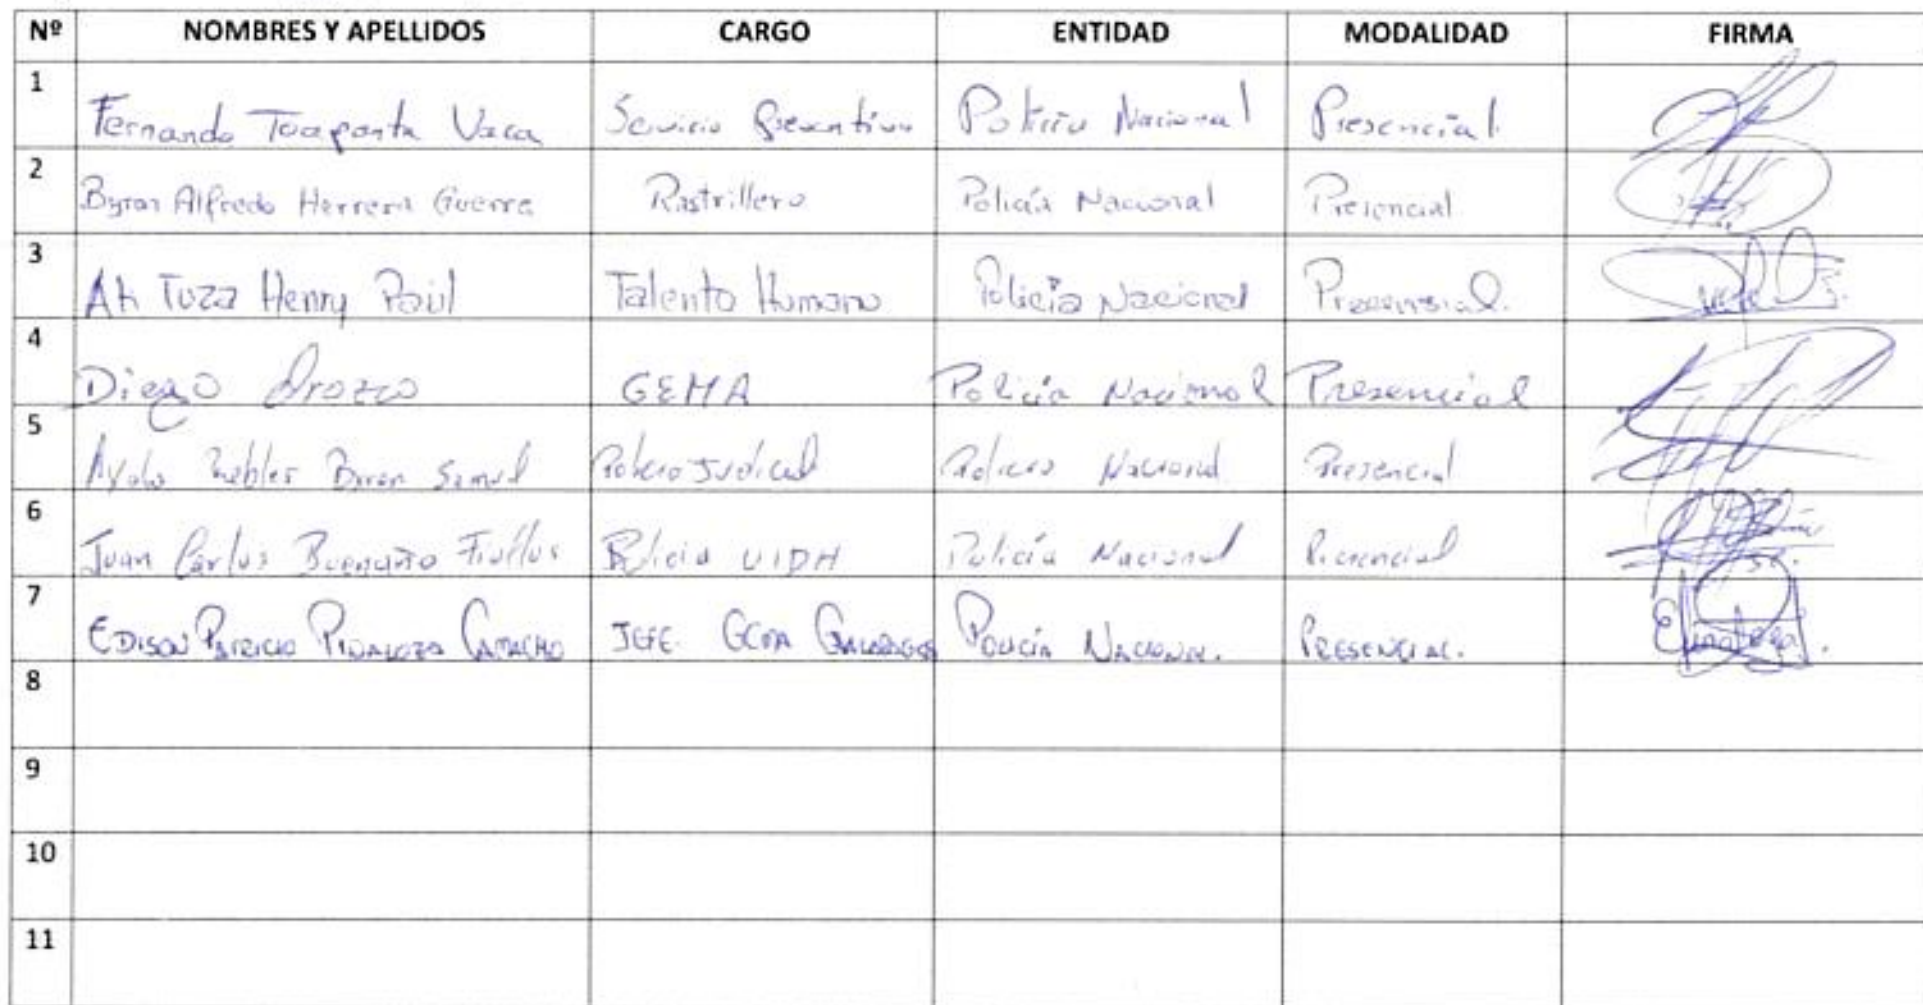 Nº NOMBRES Y APELLIDOS CARGO ENTIDAD MODALIDAD FIRMA
1 Fernando Toapanta Vaca Servicio Preventivo Policía Nacional Presencial.
2 Byron Alfredo Herrera Guerra Rastrillero Policía Nacional Presencial
3 Ati Toza Henry Paúl Talento Humano Policía Nacional Presensial.
4 Diego Orozco GEMA Policía Nacional Presencial
5 Ayala Byron Samuel Policia Judicial Policia Nacional Presencial
6 Juan Carlos Buenaño Policia UIDH Policía Nacional Presencial
7 EDISON PATRICIO CAMACHO JEFE. GALAPAGOS POLICÍA NACIONAL. PRESENCIAL.
8
9
10
11